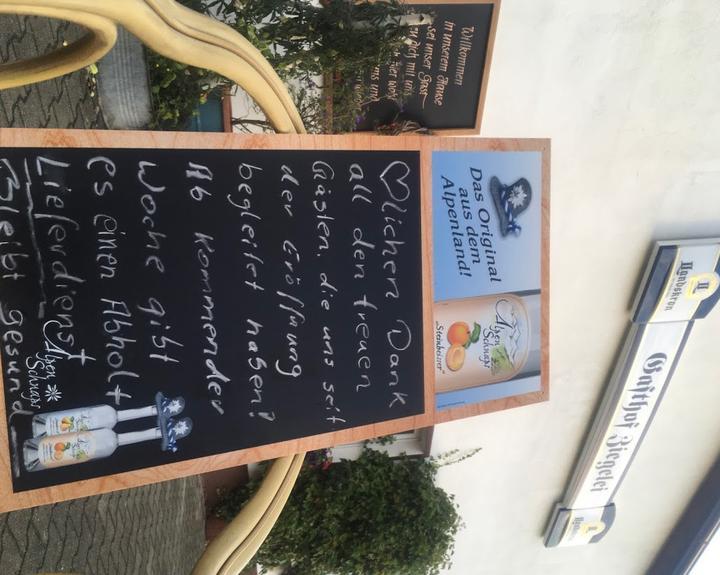 Willkommen
in unserem Hause
sei unser Gast
Das Original
aus dem
Alpenland!
Alpen
Schnaps
"Steinbeisser"
♡lichen Dank
all den treuen
Gästen, die uns seit
der Eröffnung
begleitet haben!
Ab kommender
Woche gibt
es einen Abholt
Lieferdienst
Bleibt gesund
Alpen
Schnaps
Landskron
Gasthof Ziegelei